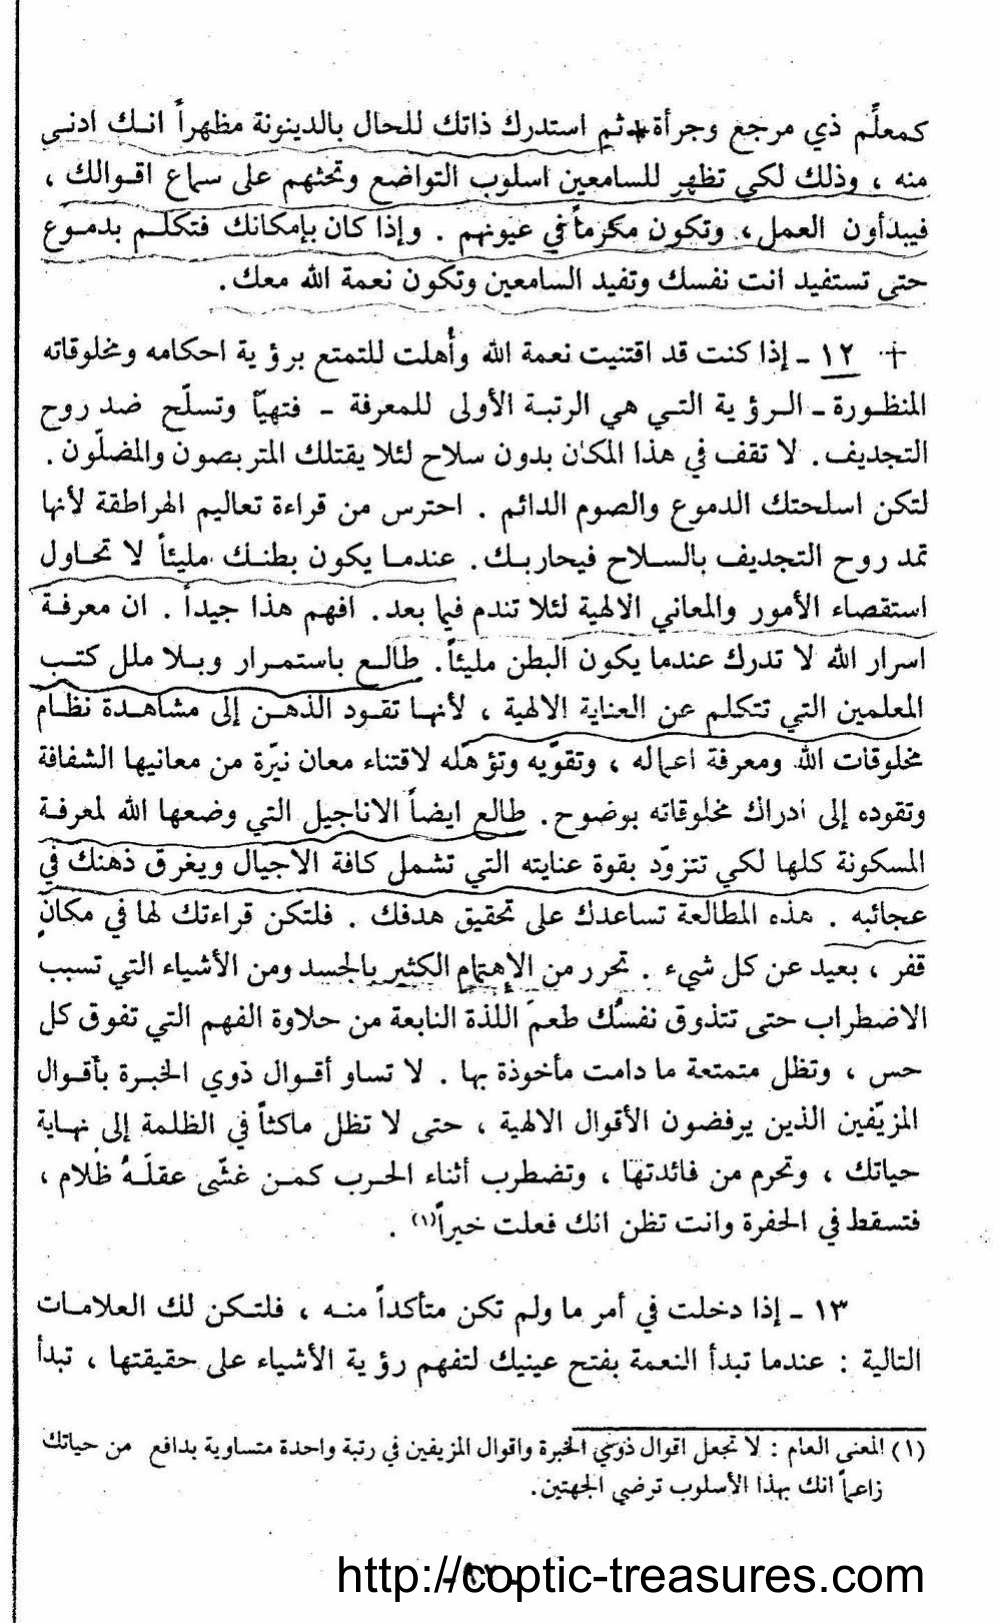 كمعلِّم ذي مرجع وجرأة ثم استدرك ذاتك للحال بالدينونة مظهراً انك ادنى
منه ، وذلك لكي تظهر للسامعين اسلوب التواضع وتحثهم على سماع اقوالك ،
فيبدأون العمل ، وتكون مكرماً في عيونهم . وإذا كان بإمكانك فتكلم بدموع
حتى تستفيد انت نفسك وتفيد السامعين وتكون نعمة الله معك .
+ ١٢ ـ إذا كنت قد اقتنيت نعمة الله وأُهلت للتمتع برؤية احكامه ومخلوقاته
المنظورة ـ الرؤية التي هي الرتبة الأولى للمعرفة ـ فتهيّأ وتسلّح ضد روح
التجديف . لا تقف في هذا المكان بدون سلاح لئلا يقتلك المتربصون والمضلّون .
لتكن اسلحتك الدموع والصوم الدائم . احترس من قراءة تعاليم الهراطقة لأنها
تمد روح التجديف بالسلاح فيحاربك . عندما يكون بطنك مليئاً لا تحاول
استقصاء الأمور والمعاني الالهية لئلا تندم فيما بعد . افهم هذا جيداً . ان معرفة
اسرار الله لا تدرك عندما يكون البطن مليئاً . طالع باستمرار وبلا ملل كتب
المعلمين التي تتكلم عن العناية الالهية ، لأنها تقود الذهن إلى مشاهدة نظام
مخلوقات الله ومعرفة اعماله ، وتقوّيه وتؤهله لاقتناء معان نيّرة من معانيها الشفافة
وتقوده إلى ادراك مخلوقاته بوضوح . طالع ايضاً الاناجيل التي وضعها الله لمعرفة
المسكونة كلها لكي تتزوّد بقوة عنايته التي تشمل كافة الاجيال ويغرق ذهنك في
عجائبه . هذه المطالعة تساعدك على تحقيق هدفك . فلتكن قراءتك لها في مكانٍ
قفر ، بعيد عن كل شيء . تحرر من الإهتمام الكثير بالجسد ومن الأشياء التي تسبب
الاضطراب حتى تتذوق نفسُك طعمَ اللذة النابعة من حلاوة الفهم التي تفوق كل
حس ، وتظل متمتعة ما دامت مأخوذة بها . لا تساو أقوال ذوي الخبرة بأقوال
المزيّفين الذين يرفضون الأقوال الالهية ، حتى لا تظل ماكثاً في الظلمة إلى نهاية
حياتك ، وتحرم من فائدتها ، وتضطرب أثناء الحرب كمن غشّى عقلَهُ ظلام ،
فتسقط في الحفرة وانت تظن انك فعلت خيراً(١) .
١٣ ـ إذا دخلت في أمر ما ولم تكن متأكداً منه ، فلتكن لك العلامات
التالية : عندما تبدأ النعمة بفتح عينيك لتفهم رؤية الأشياء على حقيقتها ، تبدأ
(١) المعنى العام : لا تجعل اقوال ذوي الخبرة واقوال المزيفين في رتبة واحدة متساوية بدافع من حياتك
زاعماً انك بهذا الأسلوب ترضي الجهتين .
http://coptic-treasures.com